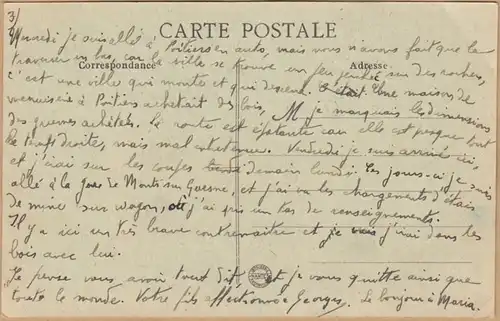 3/
CARTE POSTALE
Correspondance
Adresse
Mercredi je suis allé à Poitiers en auto, mais nous n'avons fait que la
traverser car la ville se trouve un peu perchée sur des rochers,
c'est une ville qui monte et qui descend. C'était Une maison de
menuiserie à Poitiers achetait des bois, je marquais les dimensions
des grumes achetés. La route est épatante car elle est presque tout
le temps droite, mais mal entretenue. Vendredi je suis arrivé ici,
et j'irai sur les coupes demain lundi. Ces jours-ci je suis
allé à la gare de Monts sur Guesne, et j'ai vu les chargements d'étais
de mine sur wagon, où j'ai pris un tas de renseignements.
Il y a ici un très brave contremaître et je vais j'irai dans les
bois avec lui.
Je pense vous avoir tout dit et je vous quitte ainsi que
toute le monde. Votre fils affectionné Georges. Le bonjour à Maria.